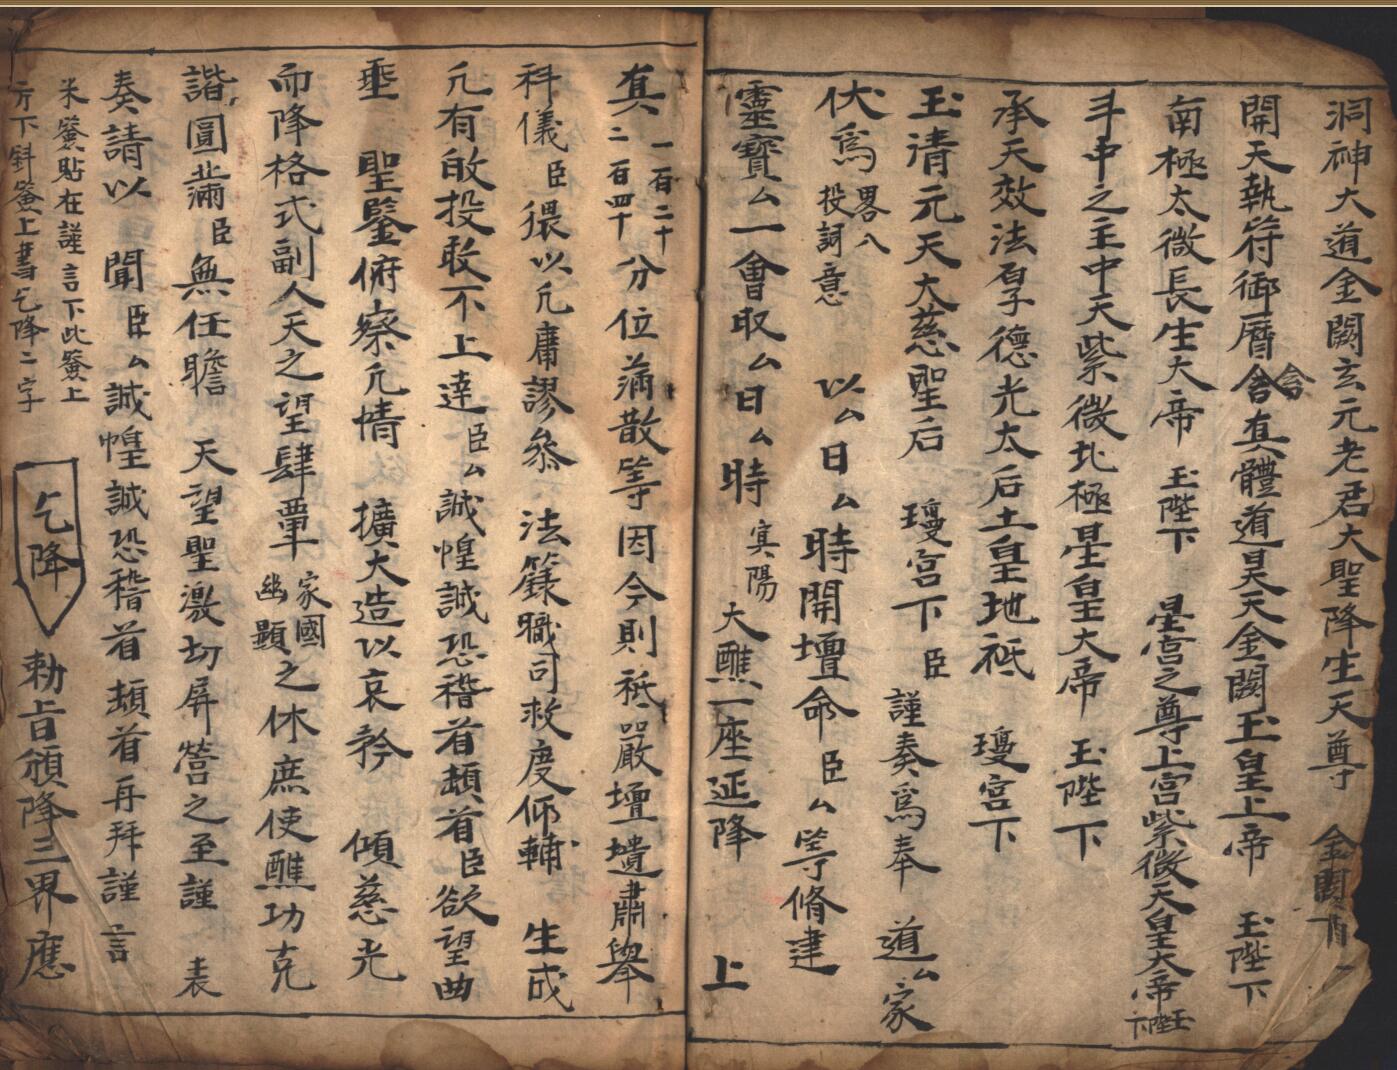 洞神大道金闕玄元老君大聖降生天尊　金闕下
開天執符御曆含含真體道昊天金闕玉皇上帝　玉陛下
南極太微長生大帝　玉陛下　星宮之尊上宮紫微天皇大帝玉陛下
斗中之主中天紫微北極星皇大帝　玉陛下
承天效法厚德光太后土皇地祇　瓊宮下
玉清元天大慈聖后　瓊宮下　臣　謹奏爲奉　道厶家
伏爲畧入投詞意　以厶日厶時開壇命臣厶等脩建
靈寶厶一會取厶日厶時　冥陽大醮一座延降　上
真一百二十二百四十分位滿散等因今則祗嚴壇墠肅舉
科儀臣猥以凡庸謬叅　法籙職司救度仰輔　生成
凡有啟投敢不上達臣厶誠惶誠恐稽首頓首臣欲望曲
垂　聖鑒俯察凡情　擴大造以哀矜　傾慈光
而降格式副人天之望肆覃家國幽顯之休庶使醮功克
諧圓滿臣無任瞻　天望聖激切屏營之至謹　表
奏請以　聞臣厶誠惶誠恐稽首頓首再拜謹　言
米簽貼在謹言下此簽上
方下斜簽上書乞降二字
乞降
勅旨頒降三界應